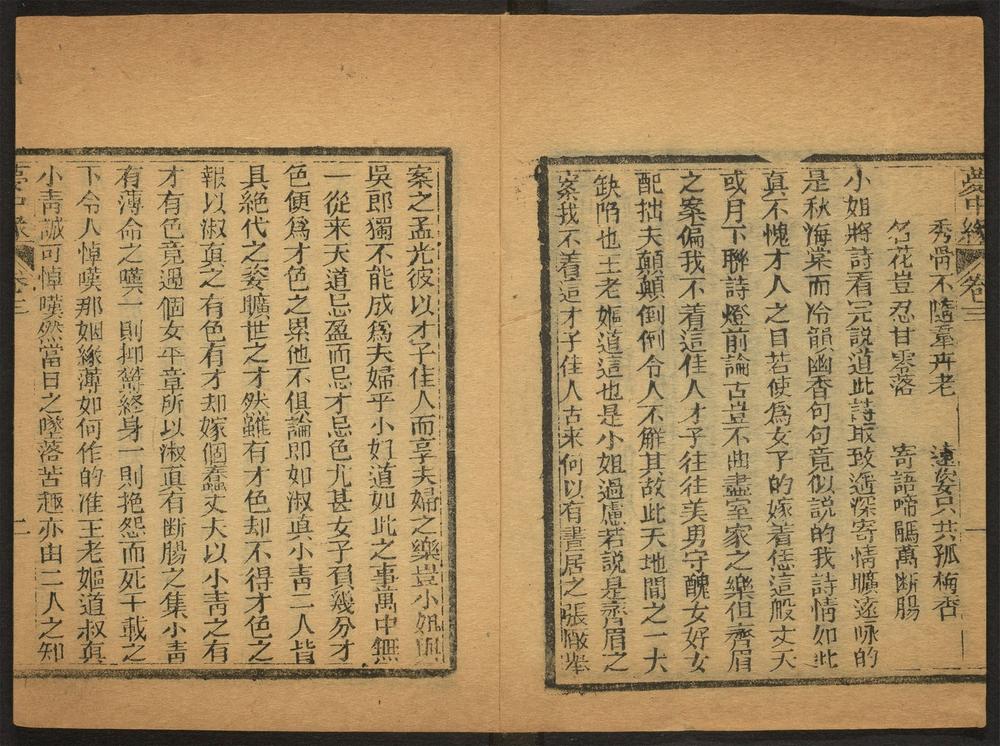 夢中緣 卷三 一
秀骨不隨羣卉老 遠姿只共孤梅香
名花豈忍甘零落 寄語啼鵑萬斷腸
小姐將詩看完說道此詩取致遙深寄情曠逺咏的
是秋海棠而冷韻幽香句句竟似說的我詩情如此
真不愧才人之目若使爲女子的嫁着恁這般丈夫
或月下聯詩燈前論古豈不曲盡室家之樂但齊眉
之案偏我不着這佳人才子往往美男守醜女好女
配拙夫顛顛倒倒令人不解其故此天地間之一大
缺陷也王老嫗道這也是小姐過慮若說是齊眉之
案我不着這才子佳人古来何以有畫眉之張敞舉
案之孟光彼以才子佳人而享夫婦之樂豈小姐與
吳郎獨不能成爲夫婦乎小姐道如此之事萬中無
一從来天道忌盈而忌才忌色尤甚女子有幾分才
色便爲才色之累他不俱論即如淑真小青二人皆
具絕代之姿曠世之才然雖有才色却不得才色之
報以淑真之有色有才却嫁個蠢丈夫以小青之有
才有色竟遇個女平章所以淑真有断腸之集小青
有薄命之嘆一則抑鬱終身一則抱怨而死千載之
下令人悼嘆那姻緣薄如何作的准王老嫗道叔真
小青誠可悼嘆然當日之墜落苦趣亦由二人之知
夢中緣 卷三 二